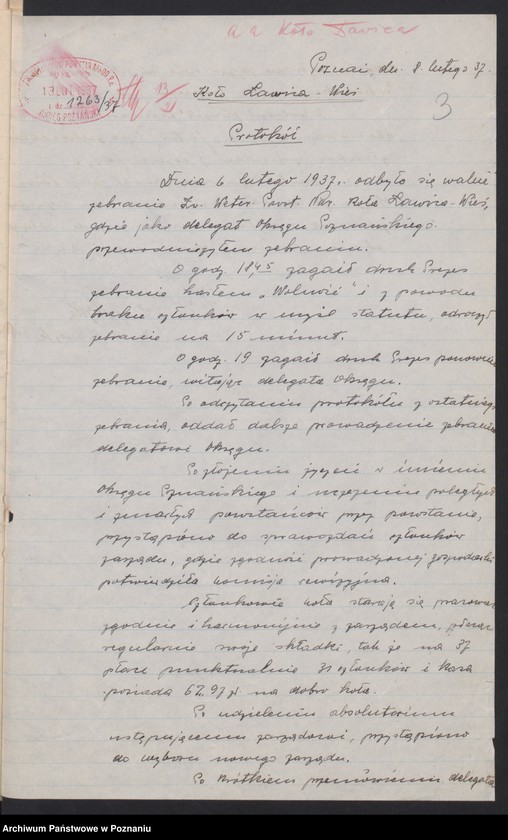 a a Koło Ławica
Poznań, dn. 8. lutego 37.
13 LUT. 1937
1263/37
OKRĘG POZNAŃSKI
Koło Ławica-Wieś
3
Protokół
Dnia 6 lutego 1937 r. odbyło się walne
zebranie Zw. Weter. Powst. Nar. Koła Ławica-Wieś,
gdzie jako delegat Okręgu Poznańskiego
przewodniczyłem zebraniu.
O godz. 18,45 zagaił druh Prezes
zebranie hasłem „Wolność" i z powodu
braku członków w myśl statutu, odroczył
zebranie na 15 minut.
O godz. 19 zagaił druh Prezes ponownie
zebranie, witając delegata Okręgu.
Po odczytaniu protokółu z ostatniego
zebrania, oddał dalsze prowadzenie zebrania
delegatowi Okręgu.
Po złożeniu życzeń w imieniu
Okręgu Poznańskiego i uczczeniu poległych
i zmarłych powstańców przez powstanie,
przystąpiono do sprawozdań członków
zarządu, gdzie zgodność prowadzonej gospodarki
potwierdziła komisja rewizyjna.
Członkowie koła starają się pracować
zgodnie i harmonijnie z zarządem, płacąc
regularnie swoje składki, tak że na 37
płaci punktualnie 31 członków i kasa
posiada 67.97 zł na dobro koła.
Po udzieleniu absolutorium
ustępującemu zarządowi, przystąpiono
do wyboru nowego zarządu.
Po krótkiem przemówieniu delegata
Archiwum Państwowe w Poznaniu